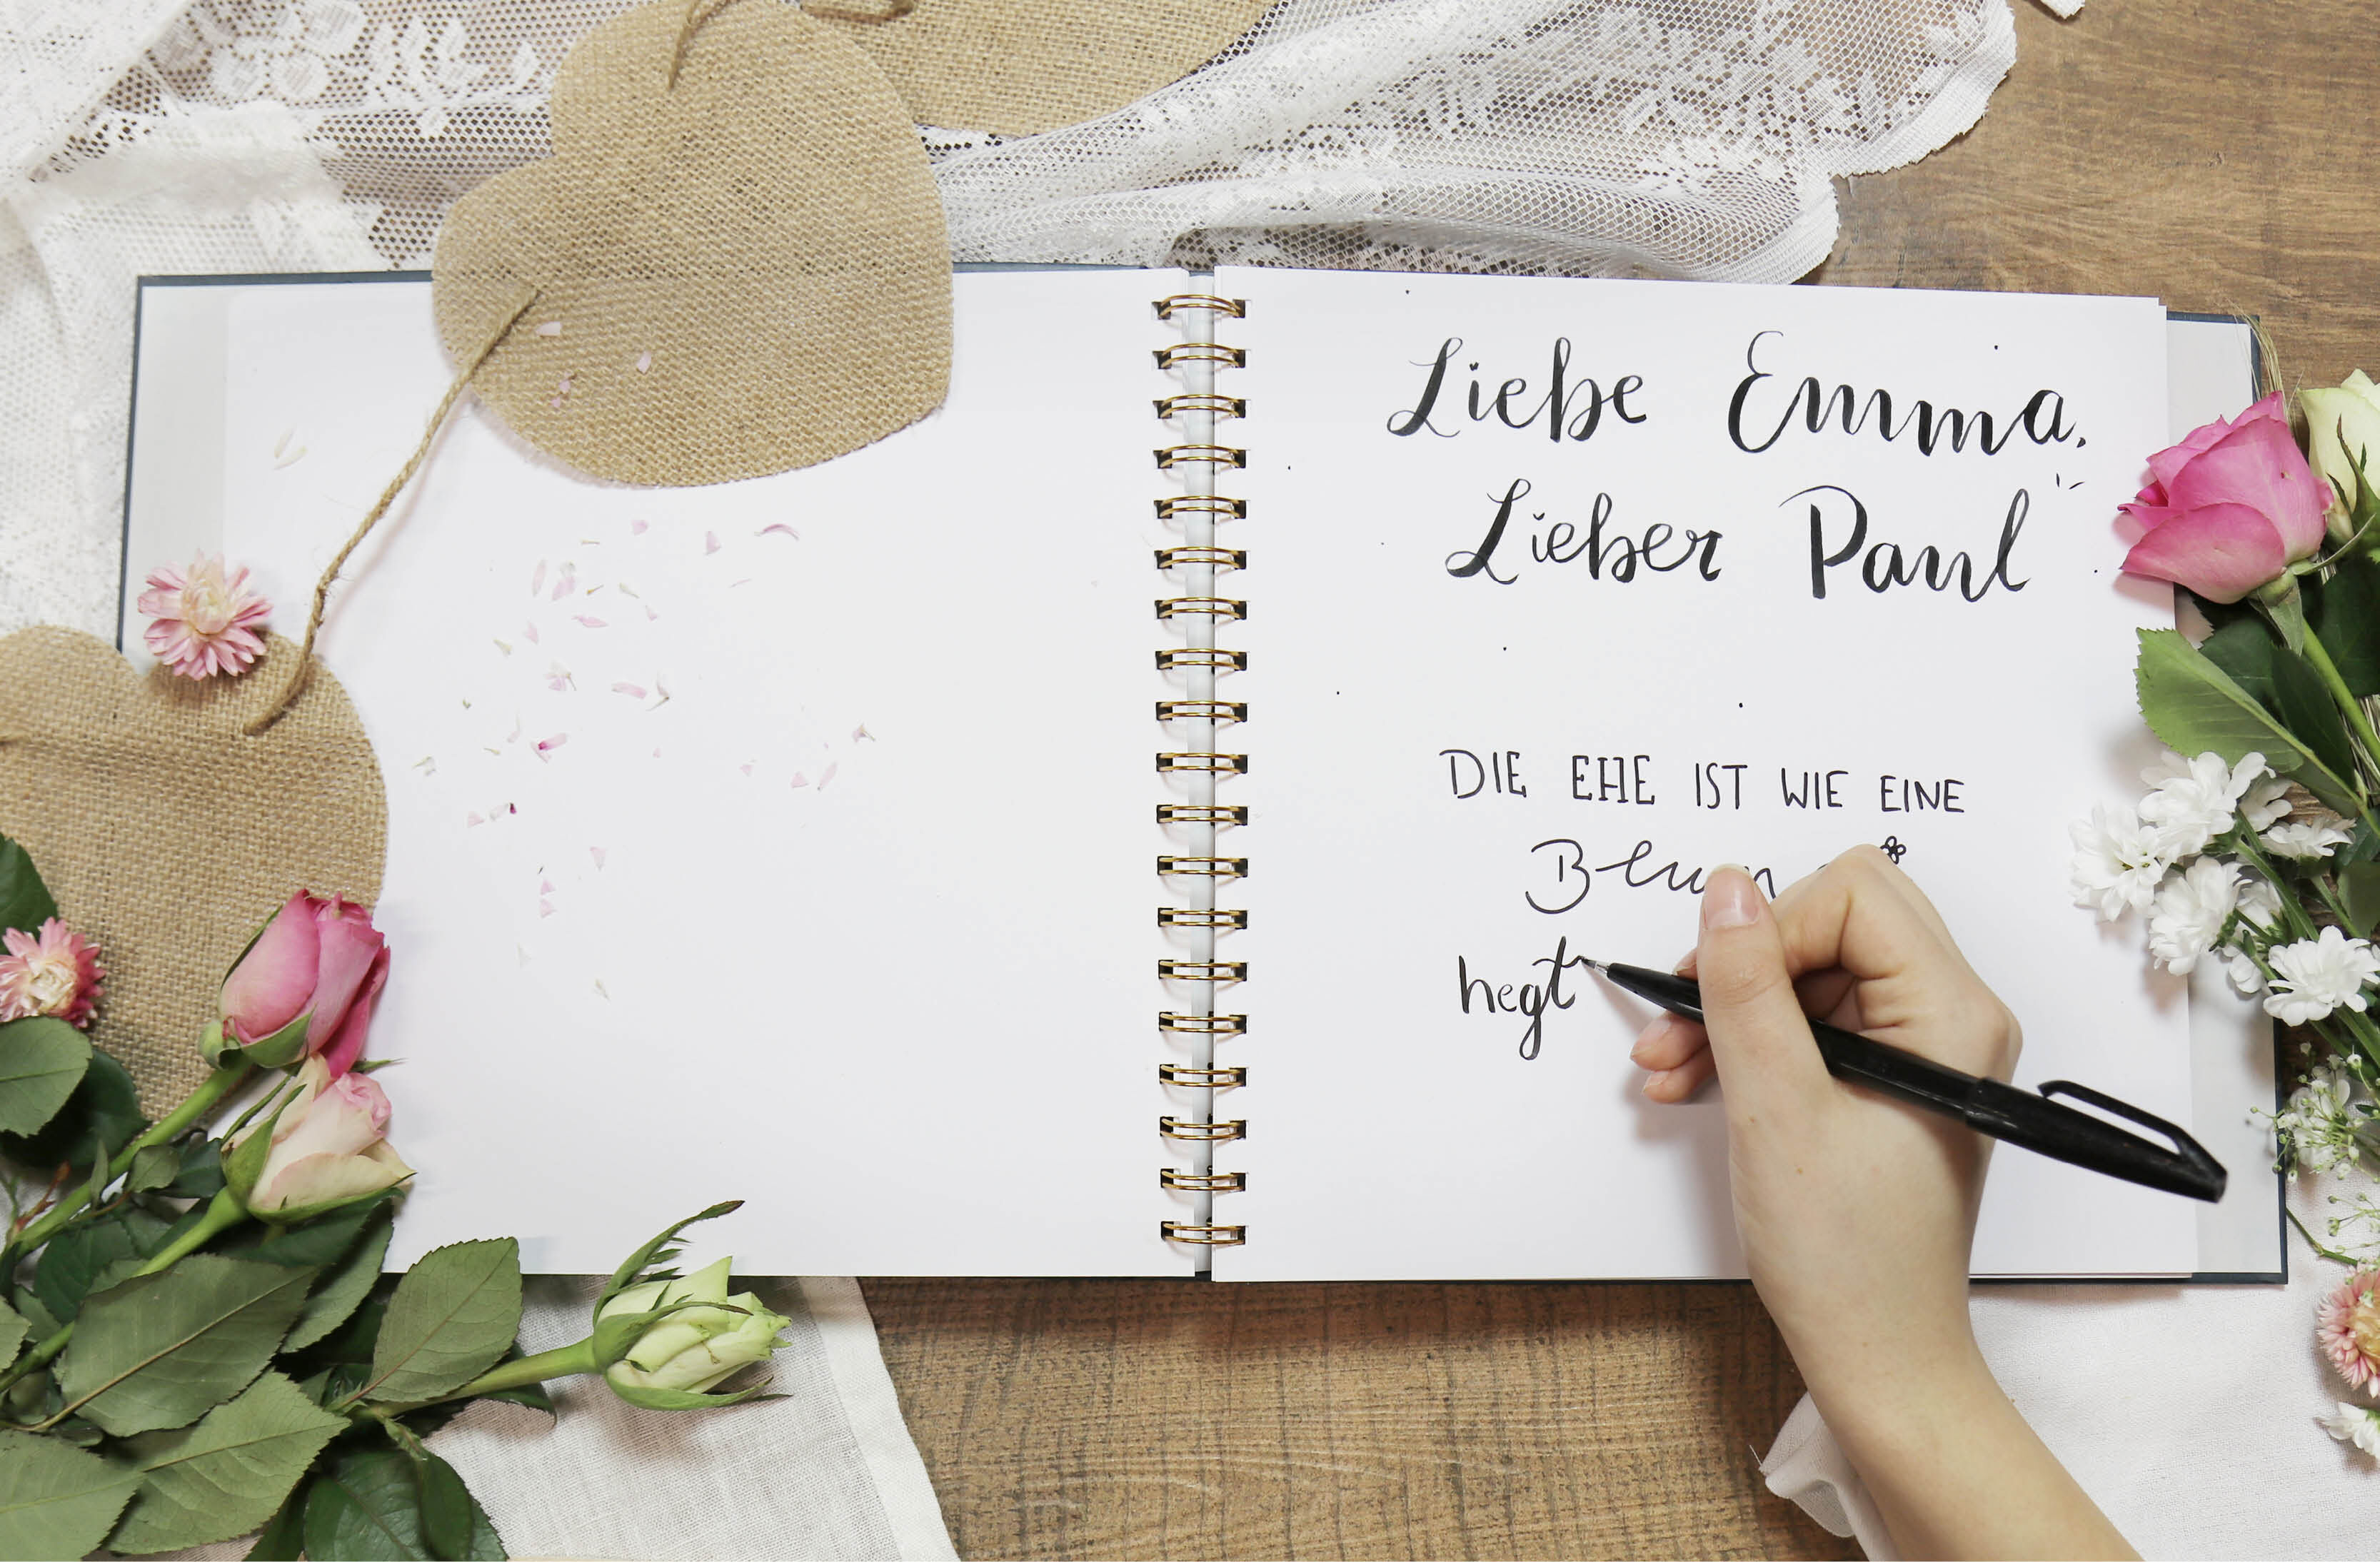 Liebe Emma,
Lieber Paul
DIE EHE IST WIE EINE
hegt